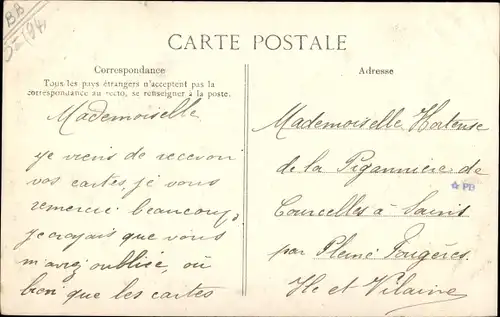 BB
CARTE POSTALE
Correspondance
Tous les pays étrangers n'acceptent pas la
correspondance au recto, se renseigner à la poste.
Mademoiselle
je viens de recevoir
vos cartes je vous
remercie beaucoup
je croyais que vous
m'aviez oubliée, ou
bien que les cartes
Adresse
Mademoiselle Hortense
de la Pigannière de
Courcelles à Saint
par Pleine Fougères
Ile et Vilaine
PB